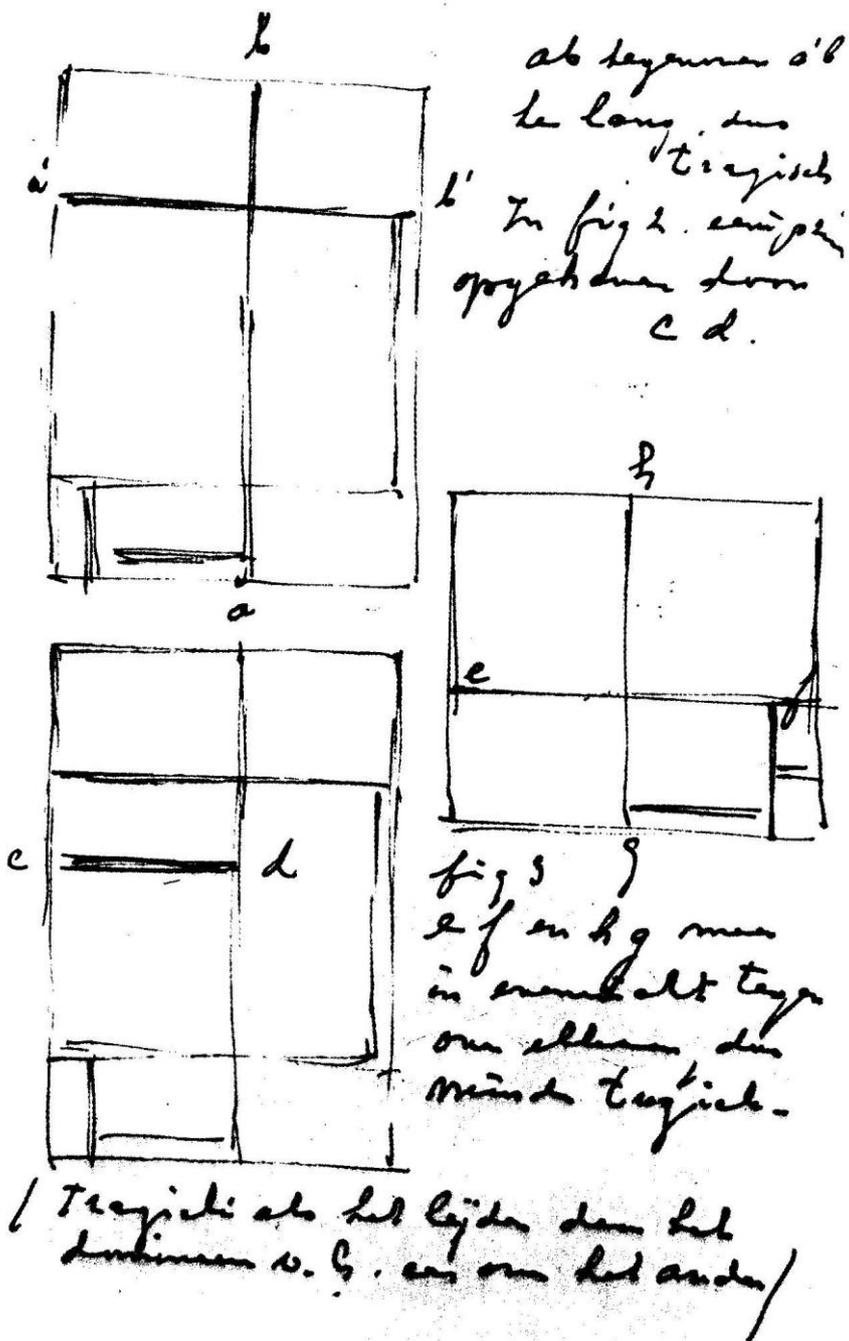 b
ab tegenover a'b'
te lang, dus
tragisch
a'
b'
In fig 2. eenigszin
opgeheven door
c d.
a
h
e
f
c
d
fig 3
g
e f en h g meer
in evenwicht tegen
over elkaar, dus
minder tragisch.
/ Tragisch als het lijden door het
domineeren v. h. een over het ander /